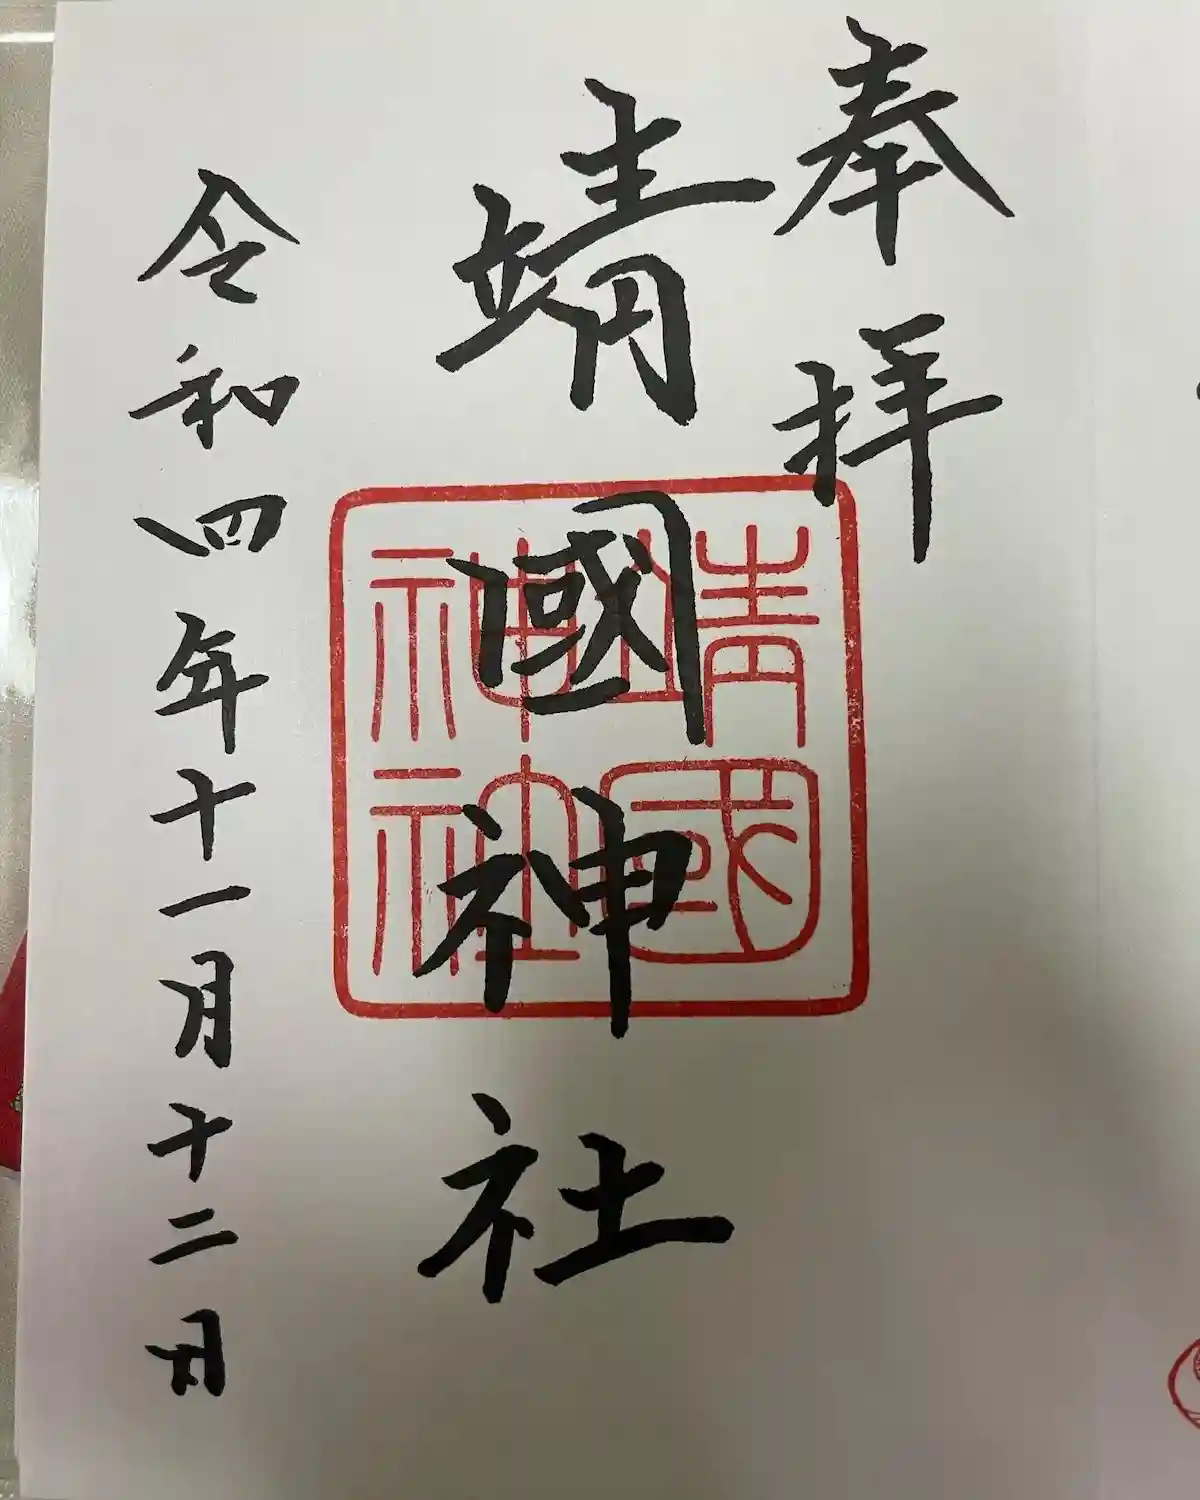 奉拝
靖國神社
靖國
神社
令和四年十一月十二日